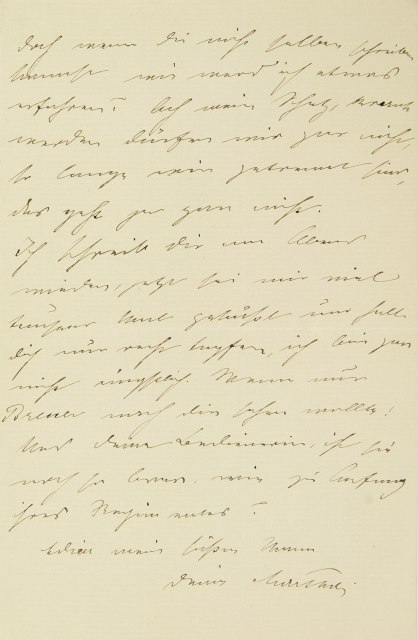 doch wenn Du nicht selber schreiben
kannst wie werd ich etwas
erfahren? Ach mein Schatz, krank
werden dürfen wir gar nicht,
so lange wir getrennt sind,
das geht ja gar nicht.
Ich schreib Dir am Abend
wieder, jetzt sei mir viel
tausend Mal geküßt und halt
dich nur recht tapfer, ich bin gar
nicht ängstlich. Wenn nur
Breuer nach dir sehen wollte!
Und deine Bedienerin, ist sie
noch so brav, wie zu Anfang
ihres Regimentes?
Adieu mein süßer Mann
deine Martha